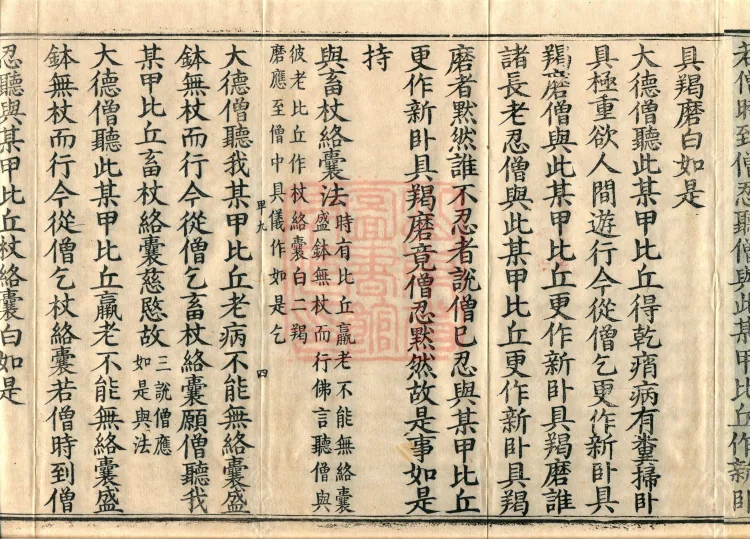 若僧時到僧忍聽僧與此某甲比丘作新卧
具羯磨白如是
大德僧聽此某甲比丘得乾痟病有糞掃卧
具極重欲人間遊行今從僧乞更作新卧具
羯磨僧與此某甲比丘更作新卧具羯磨誰
諸長老忍僧與此某甲比丘更作新卧具羯
磨者默然誰不忍者說僧已忍與某甲比丘
更作新卧具羯磨竟僧忍默然故是事如是
持
與畜杖絡囊法時有比丘羸老不能無絡囊
盛鉢無杖而行佛言聽僧與
彼老比丘作杖絡囊白二羯
磨應至僧中具儀作如是乞
甲九 四
大德僧聽我某甲比丘老病不能無絡囊盛
鉢無杖而行今從僧乞畜杖絡囊願僧聽我
某甲比丘畜杖絡囊慈愍故三說僧應
如是與法
大德僧聽此某甲比丘羸老不能無絡囊盛
鉢無杖而行今從僧乞杖絡囊若僧時到僧
忍聽與某甲比丘杖絡囊白如是